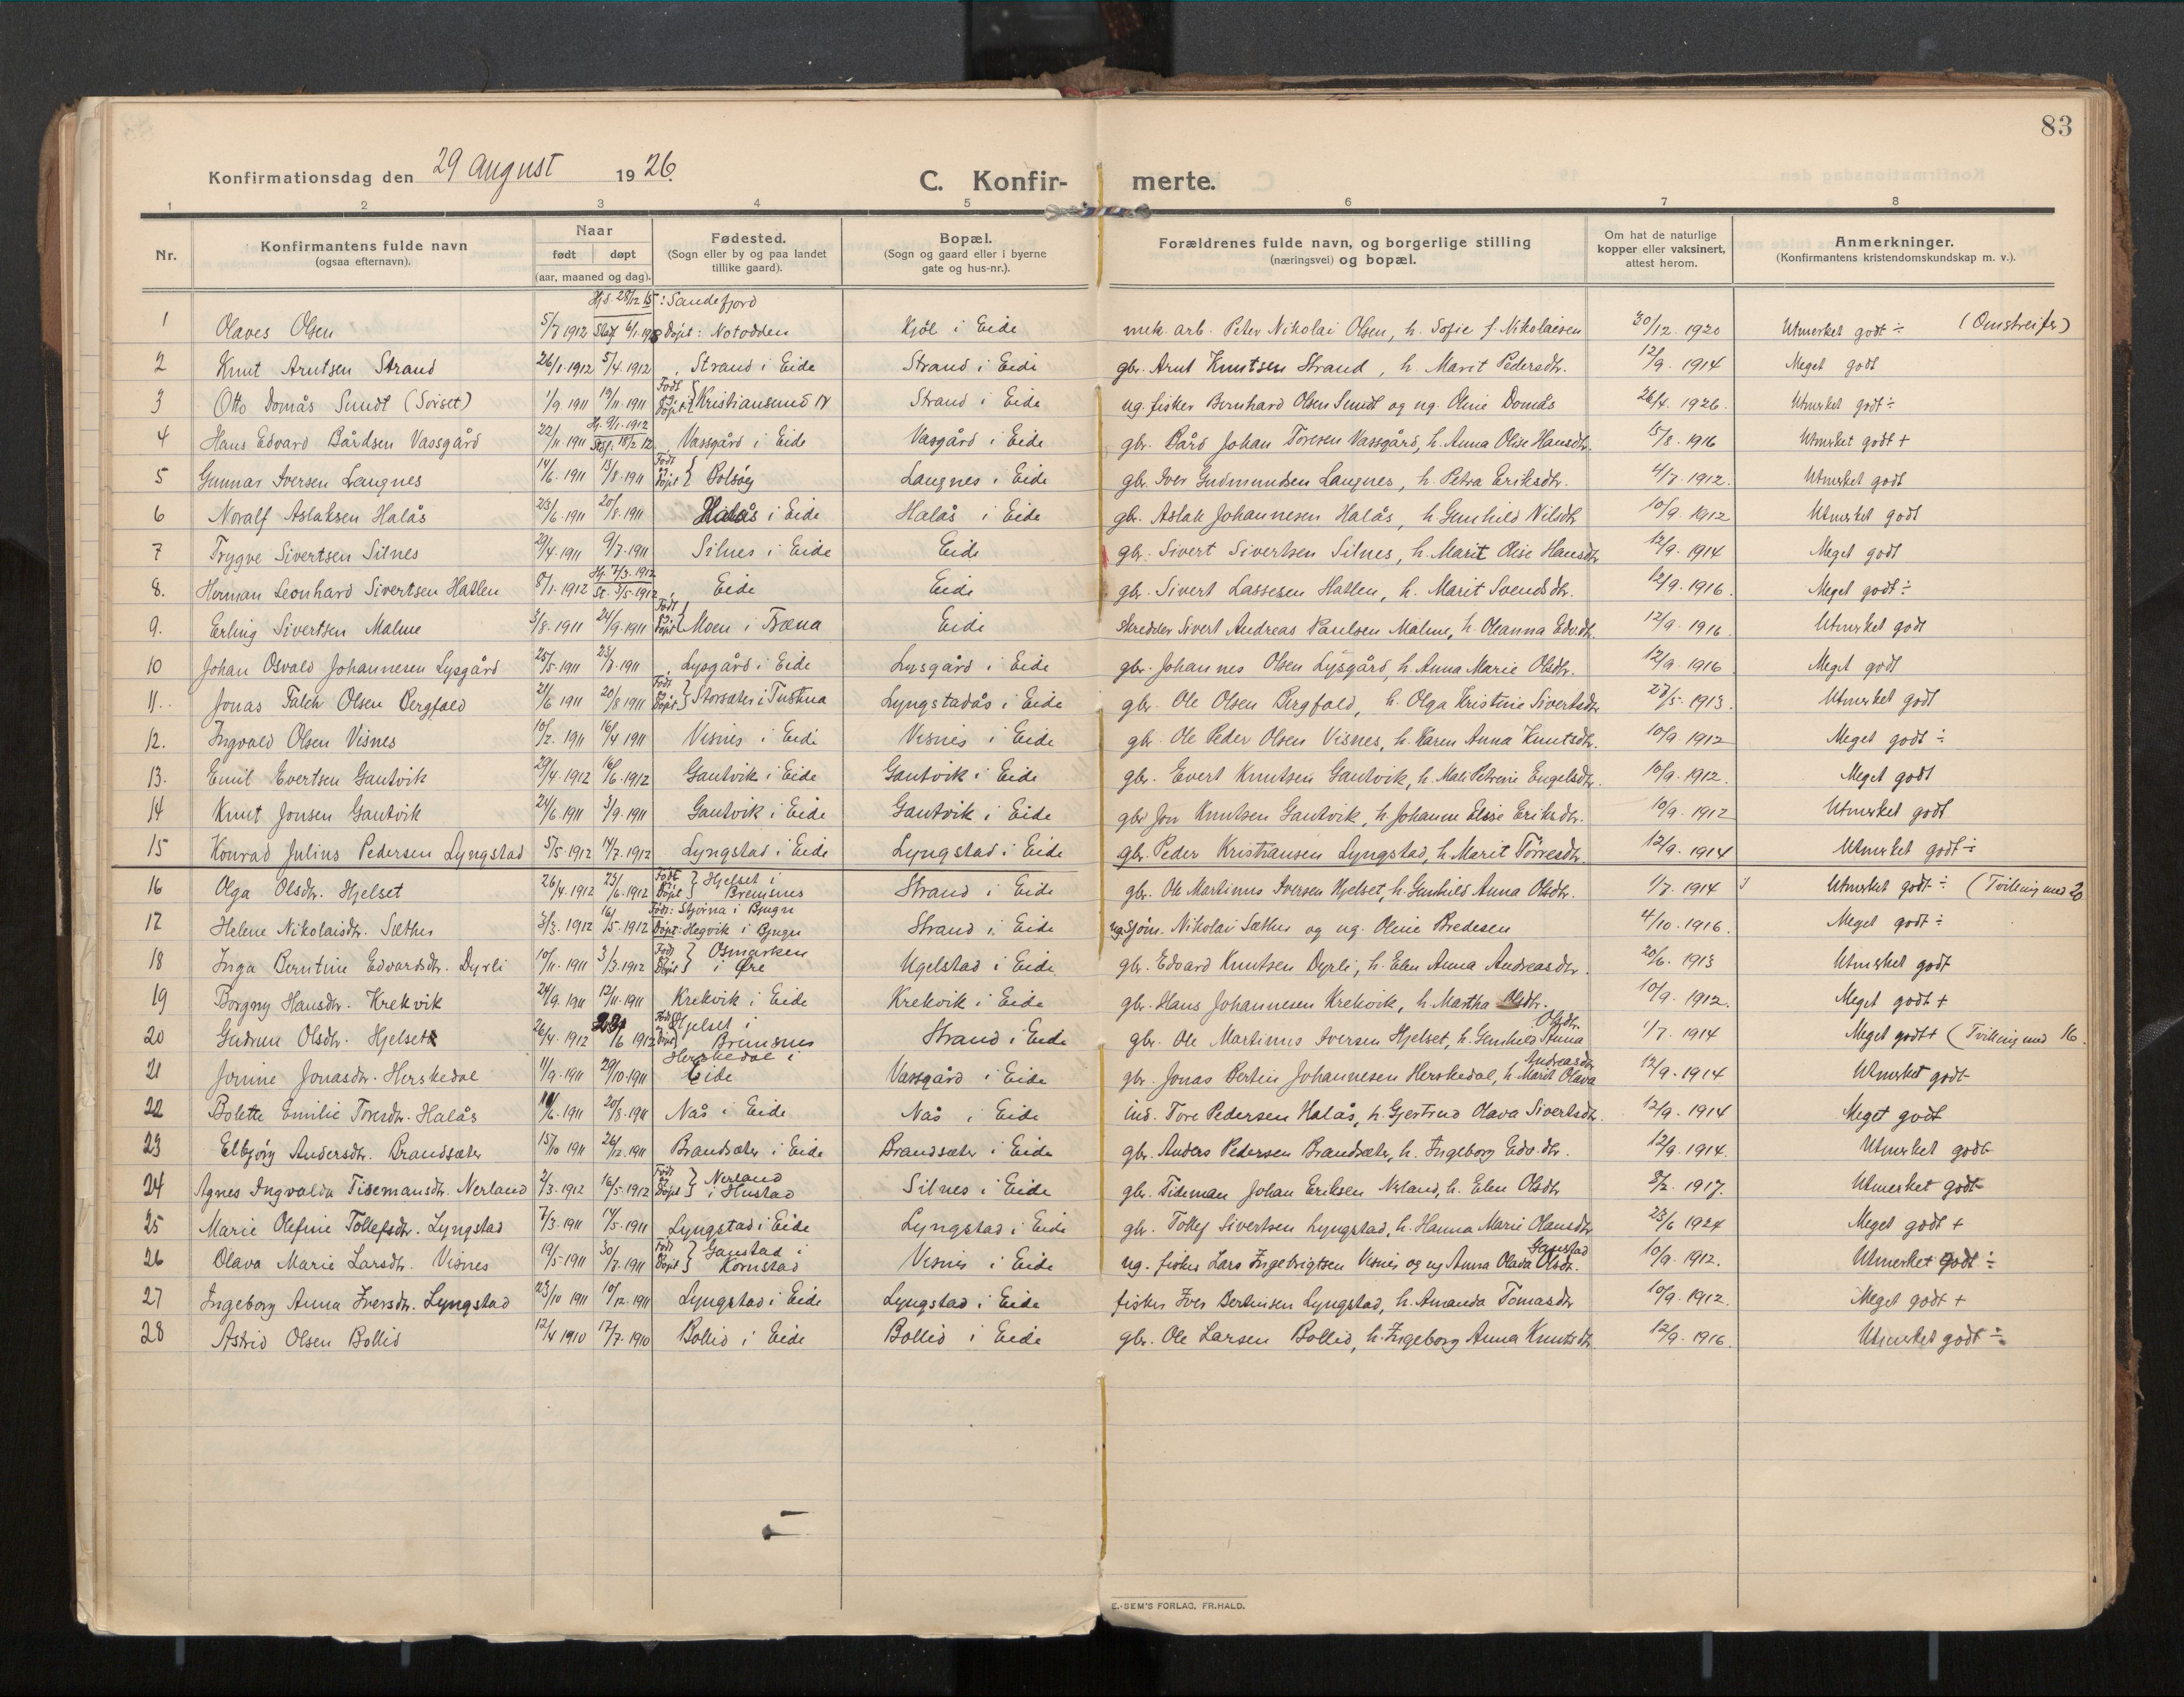 83
Konfirmationsdag den 29 august 1926.
C. Konfir- merte.
1 2 3 4 5 6 7 8
Nr.
Konfirmantens fulde navn
(ogsaa efternavn).
Naar
født døpt
(aar, maaned og dag).
Fødested.
(Sogn eller by og paa landet
tillike gaard).
Bopæl.
(Sogn og gaard eller i byerne
gate og hus-nr.).
Forældrenes fulde navn, og borgerlige stilling
(næringsvei) og bopæl.
Om hat de naturlige
kopper eller vaksinert,
attest herom.
Anmerkninger.
(Konfirmantens kristendomskundskap m. v.).
Hj.d. 28/12 15 : Sandefjord
1 Olaves Olsen 5/7 1912 Stadf. 6/1. Døpt: Notodden Kjøl i Eide mek. arb. Peter Nikolai Olsen, h. Sofie f. Nikolaisen 30/12. 1920 Utmerket godt ÷ (Omstreifer)
2 Knut Arntsen Strand 26/1 1912 5/4 1912 Strand i Eide Strand i Eide gbr. Arnt Knutsen Strand, h. Marit Pedersdtr. 12/9. 1914 Meget godt
3 Otto Domås Sundt (Sørset) 1/9 1911 19/11 1911 Født og Døpt } Kristiansund N Strand i Eide ug. fisker Bernhard Olsen Sundt og ug. Oline Domås 26/4. 1926. Utmerket godt ÷
4 Hans Edvard Bårdsen Vassgård 22/11 1911 Hj. 9/1. 1912 Stadf. 18/2 12 Vassgård i Eide Vasgård i Eide gbr. Bård Johan Toresen Vassgård, h. Anna Olise Hansdtr. 15/8. 1916 Utmerket godt +
5 Gunnar Iversen Langnes 14/6. 1911 13/8. 1911 Født og Døpt } Bolsøy Langnes i Eide gbr. Iver Gudmundsen Langnes, h. Petra Eriksdtr. 4/7. 1912. Utmerket godt
6 Noralf Aslaksen Halås 23/6. 1911 20/8. 1911 Halås i Eide Halås i Eide gbr. Aslak Johannesen Halås, h. Gunhild Nilsdtr 10/9. 1912 Utmerket godt
7 Trygve Sivertsen Silnes 29/4. 1911 9/7. 1911 Silnes i Eide Eide gbr. Sivert Sivertsen Silnes, h. Marit Olise Hansdtr 12/9. 1914 Meget godt
8. Herman Leonhard Sivertsen Hatlen 8/1. 1912 Hj. 7/3. 1912 St. 3/5. 1912 Eide Eide gbr. Sivert Lassesen Hatlen, h. Marit Svendsdtr. 12/9. 1916. Meget godt ÷
9. Erling Sivertsen Malme 3/8. 1911 24/9. 1911 Født og Døpt } Moen i Fræna Eide skredder Sivert Andreas Paulsen Malme, h. Oleanna Edv.dtr. 12/9. 1916. Utmerket godt
10 Johan Osvald Johannesen Lysgård 25/5. 1911 23/7. 1911 Lysgård i Eide Lysgård i Eide gbr. Johannes Olsen Lysgård, h. Anna Marie Olsdtr. 12/9. 1916 Meget godt
11. Jonas Falch Olsen Bergfald 21/6 1911 20/8 1911 Født og Døpt } Storsæter i Tustna Lyngstadås i Eide gbr. Ole Olsen Bergfald, h. Olga Kristine Sivertsdtr 27/5. 1913. Utmerket godt
12. Ingvald Olsen Visnes 10/2. 1911 16/4 1911 Visnes i Eide Visnes i Eide gbr. Ole Peder Olsen Visnes, h. Karen Anna Knutsdtr. 10/9. 1912 Meget godt ÷
13. Emil Evertsen Gautvik 29/4. 1912 16/6. 1912 Gautvik i Eide Gautvik i Eide gbr. Evert Knutsen Gautvik, h. Mali Petrine Engelsdtr. 10/9. 1912. Meget godt
14 Knut Jonsen Gautvik 24/6. 1911 3/9. 1911 Gautvik i Eide Gautvik i Eide gbr Jon Knutsen Gautvik, h. Johanna Elise Eriksdtr. 10/9. 1912 Utmerket godt
15 Konrad Julius Pedersen Lyngstad 5/5. 1912 14/7. 1912 Lyngstad i Eide Lyngstad i Eide gbr. Peder Kristiansen Lyngstad, h. Marit Törresdtr. 12/9. 1914 Utmerket godt ÷
16 Olga Olsdtr. Hjelset 26/4. 1912 23/6. 1912 Født og Døpt } Hjelset i Bremsnes Strand i Eide gbr. Ole Martinus Iversen Hjelset, h. Gunhild Anna Olsdtr. 1/7. 1914 Utmerket godt ÷ (Tvilling med 20
17 Helene Nikolaisdtr. Sæther 3/3. 1912 16/5. 1912 Født: Stjørna i Bjugn Døpt: Hegvik i Bjugn Strand i Eide ug. sjøm. Nikolai Sæther og ug. Oline Bredesen 4/10. 1916. Meget godt ÷
18 Inga Berntine Edvardsdtr. Dyrli 10/11. 1911 3/3. 1912 Født og Døpt } Osmarken i Øre Ugelstad i Eide gbr. Edvard Knutsen Dyrli, h. Elen Anna Andreasdtr. 20/6. 1913 Utmerket godt
19 Borgny Hansdtr. Krekvik 24/9. 1911 12/11. 1911 Krekvik i Eide Krekvik i Eide gbr. Hans Johannesen Krekvik, h. Martha Olsdtr. 10/9. 1912. Meget godt +
20 Gudrun Olsdtr. Hjelset 26/4. 1912 23/6 1912 Født og Døpt } Hjelset i Bremsnes Strand i Eide gbr. Ole Martinus Iversen Hjelset, h. Gunhild Anna Olsdtr. 1/7. 1914 Meget godt + (Tvilling med 16.
21 Jorine Jonasdtr. Herskedal 11/9. 1911 29/10. 1911 Herskedal i Eide Vassgård i Eide gbr. Jonas Bertin Johannesen Herskedal, h. Marit Olava Andreasdtr 12/9. 1914 Utmerket godt
22 Bolette Emilie Toresdtr. Halås /6. 1911 20/8. 1911 Nås i Eide Nås i Eide ind. Tore Pedersen Halås, h. Gjertrud Olava Sivertsdtr. 12/9. 1914 Meget godt
23 Elbjörg Andersdtr. Brandsæter 15/10 1911 26/12. 1911 Brandsæter i Eide Brandsæter i Eide gbr. Anders Pedersen Brandsæter, h. Ingeborg Edv.dtr. 12/9. 1914. Utmerket godt
24 Agnes Ingvalda Tidemansdtr. Nerland 2/3. 1912 16/5. 1912 Født og Døpt } Nerland i Hustad Silnes i Eide gbr. Tideman Johan Eriksen Nerland, h. Elen Olsdtr 8/2. 1917. Utmerket godt
25 Marie Olefine Tollefsdtr. Lyngstad 7/3. 1911 14/5. 1911 Lyngstad i Eide Lyngstad i Eide gbr. Tollef Sivertsen Lyngstad, h. Hanna Marie Olausdtr 23/6 1924 Meget godt +
26 Olava Marie Larsdtr. Visnes 19/5. 1911 30/7. 1911 Født og Døpt } Gaustad i Kornstad Visnes i Eide ug. fisker Lars Ingebrigtsen Visnes og ug Anna Olava Olsdtr. Gaustad 10/9. 1912. Utmerket godt ÷
27 Ingeborg Anna Iversdtr. Lyngstad 23/10 1911 10/12. 1911 Lyngstad i Eide Lyngstad i Eide fisker Iver Bertinsen Lyngstad, h. Amanda Tomasdtr 10/9. 1912. Meget godt +
28 Astrid Olsen Bollid 12/4 1910 17/7. 1910 Bollid i Eide Bollid i Eide gbr. Ole Larsen Bollid, h. Ingeborg Anna Knutsdtr. 12/9. 1916. Utmerket godt ÷
E. SEM'S FORLAG, FR.HALD.